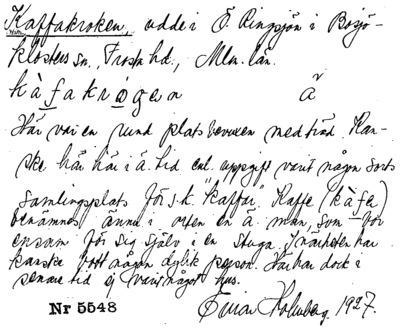 Kaffakroken, udde i Ö. Ringsjön i Bosjö-
klosters sn., Frosta hd., Mlm. län.
hàfakrogen ă
Här var en rund plats bevuxen med träd. Kan-
ske här här i ä. tid enl. uppgift varit någon sorts
samlingsplats för s.k. "kaffar". Kaffe (kàfə)
benämnes ännu i orten en ä. man, som bor
ensam för sig själv i en stuga. I närheten har
kanske bott någon dylik person. Här har dock i
senare tid ej varit något hus.
Nr 5548 Einar Holmberg. 1927.